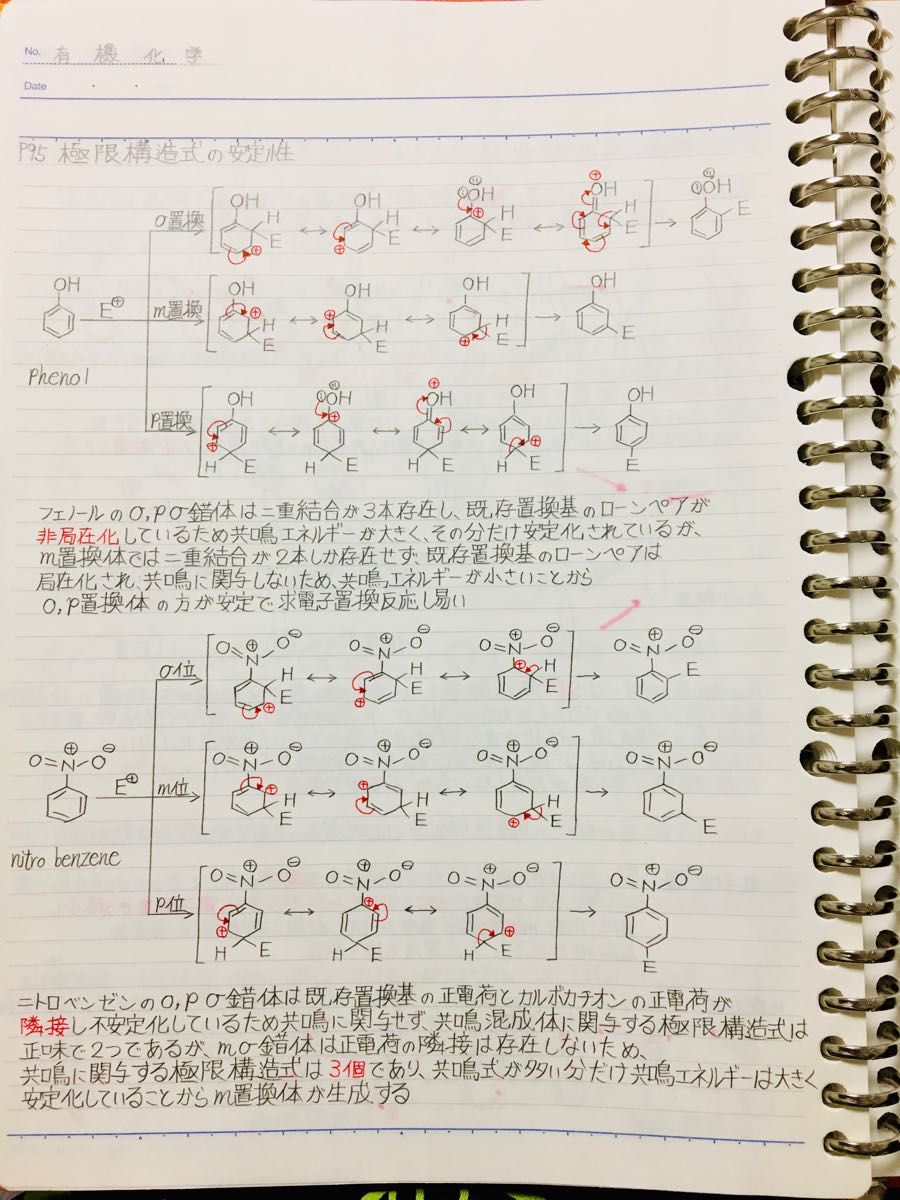 No. 有機化学
Date
P95 極限構造式の安定性
o置換
OH
H
E
⊕
OH
H
E
⊕
OH
H
E
⊕
OH
H
E
⊕
OH
E
OH
E⊕
m置換
OH
H
E
⊕
OH
H
E
⊕
OH
H
E
⊕
OH
E
Phenol
p置換
OH
H
E
⊕
OH
H
E
⊕
OH
H
E
⊕
OH
H
E
⊕
OH
E
フェノールのo,pσ錯体は二重結合が3本存在し、既存置換基のローンペアが
非局在化しているため共鳴エネルギーが大きく、その分だけ安定化されているが、
m置換体では二重結合が2本しか存在せず、既存置換基のローンペアは
局在化され、共鳴に関与しないため、共鳴エネルギーが小さいことから
o,p置換体の方が安定で求電子置換反応し易い
o位
O=N⊕-O⊖
H
E
⊕
O=N⊕-O⊖
H
E
⊕
O=N⊕-O⊖
H
E
⊕
O=N⊕-O⊖
E
O=N⊕-O⊖
E⊕
m位
O=N⊕-O⊖
H
E
⊕
O=N⊕-O⊖
H
E
⊕
O=N⊕-O⊖
H
E
⊕
O=N⊕-O⊖
E
nitro benzene
p位
O=N⊕-O⊖
H
E
⊕
O=N⊕-O⊖
H
E
⊕
O=N⊕-O⊖
H
E
⊕
O=N⊕-O⊖
E
ニトロベンゼンのo,p σ錯体は既存置換基の正電荷とカルボカチオンの正電荷が
隣接し不安定化しているため共鳴に関与せず、共鳴混成体に関与する極限構造式は
正味で2つであるが、mσ錯体は正電荷の隣接は存在しないため、
共鳴に関与する極限構造式は3個であり、共鳴式が多い分だけ共鳴エネルギーは大きく
安定化していることからm置換体が生成する